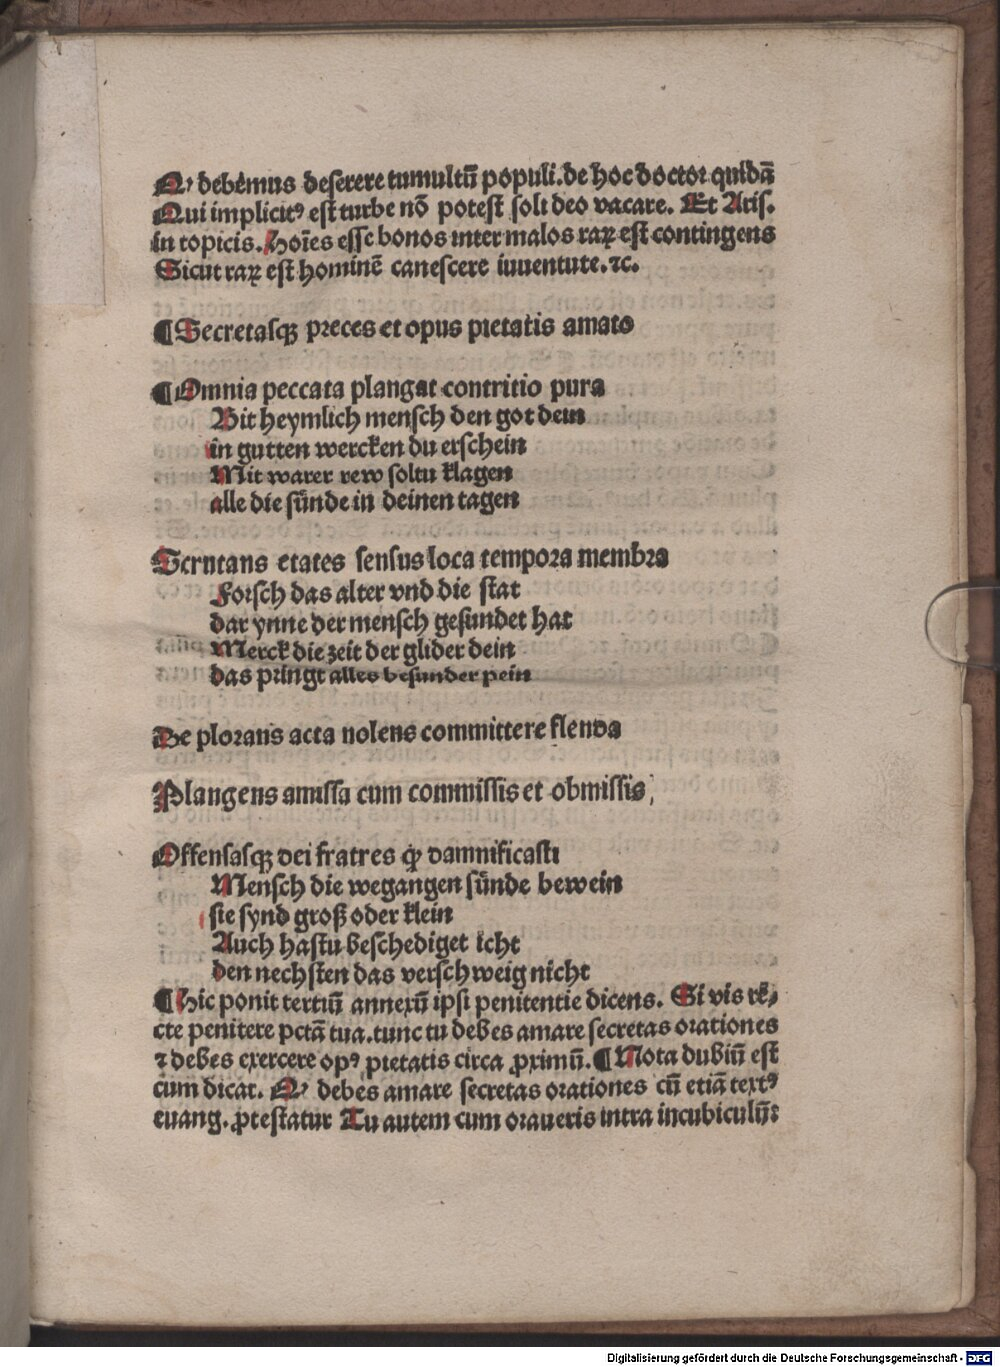 Qꝛ debemus deserere tumultū populi. de hoc doctor quidā
Qui implicitꝰ est turbe nō potest soli deo vacare. Et Aris.
in topicis. Hoīes esse bonos inter malos raꝝ est contingens
Sicut raꝝ est hominē canescere iuuentute. ⁊c.
¶ Secretasqꝫ preces et opus pietatis amato
¶ Omnia peccata plangat contritio pura
Bit heymlich mensch den got dein
in gutten wercken du erschein
Mit warer rew soltu klagen
alle die sünde in deinen tagen
Scrutans etates sensus loca tempora membra
Forsch das alter vnd die stat
dar ynne der mensch gesundet hat
Merck die zeit der glider dein
das pringt alles besunder pein
De plorans acta nolens committere flenda
Plangens amissa cum commissis et obmissis,
Offensasqꝫ dei fratres ꝙ damnificasti
Mensch die wegangen sünde bewein
sie synd groß oder klein
Auch hastu beschediget icht
den nechsten das verschweig nicht
¶ Hic ponit tertiū annexū ipsi penitentie dicens. Si vis re⸗
cte penitere pctā tua. tunc tu debes amare secretas orationes
⁊ debes exercere opꝰ pietatis circa ꝓximū. ¶ Nota dubiū est
cum dicat. Qꝛ debes amare secretas orationes cū etiā textꝰ
euang. ꝓtestatur Tu autem cum oraueris intra in cubiculū:
Digitalisierung gefördert durch die Deutsche Forschungsgemeinschaft - DFG